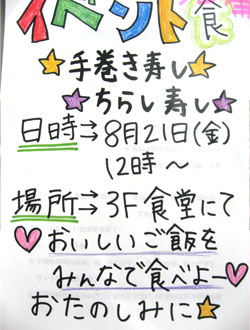 イベント食
手巻き寿し
ちらし寿し
日時⇒8月21日(金)
12時～
場所→3F食堂にて
おいしいご飯を
みんなで食べよー
おたのしみに